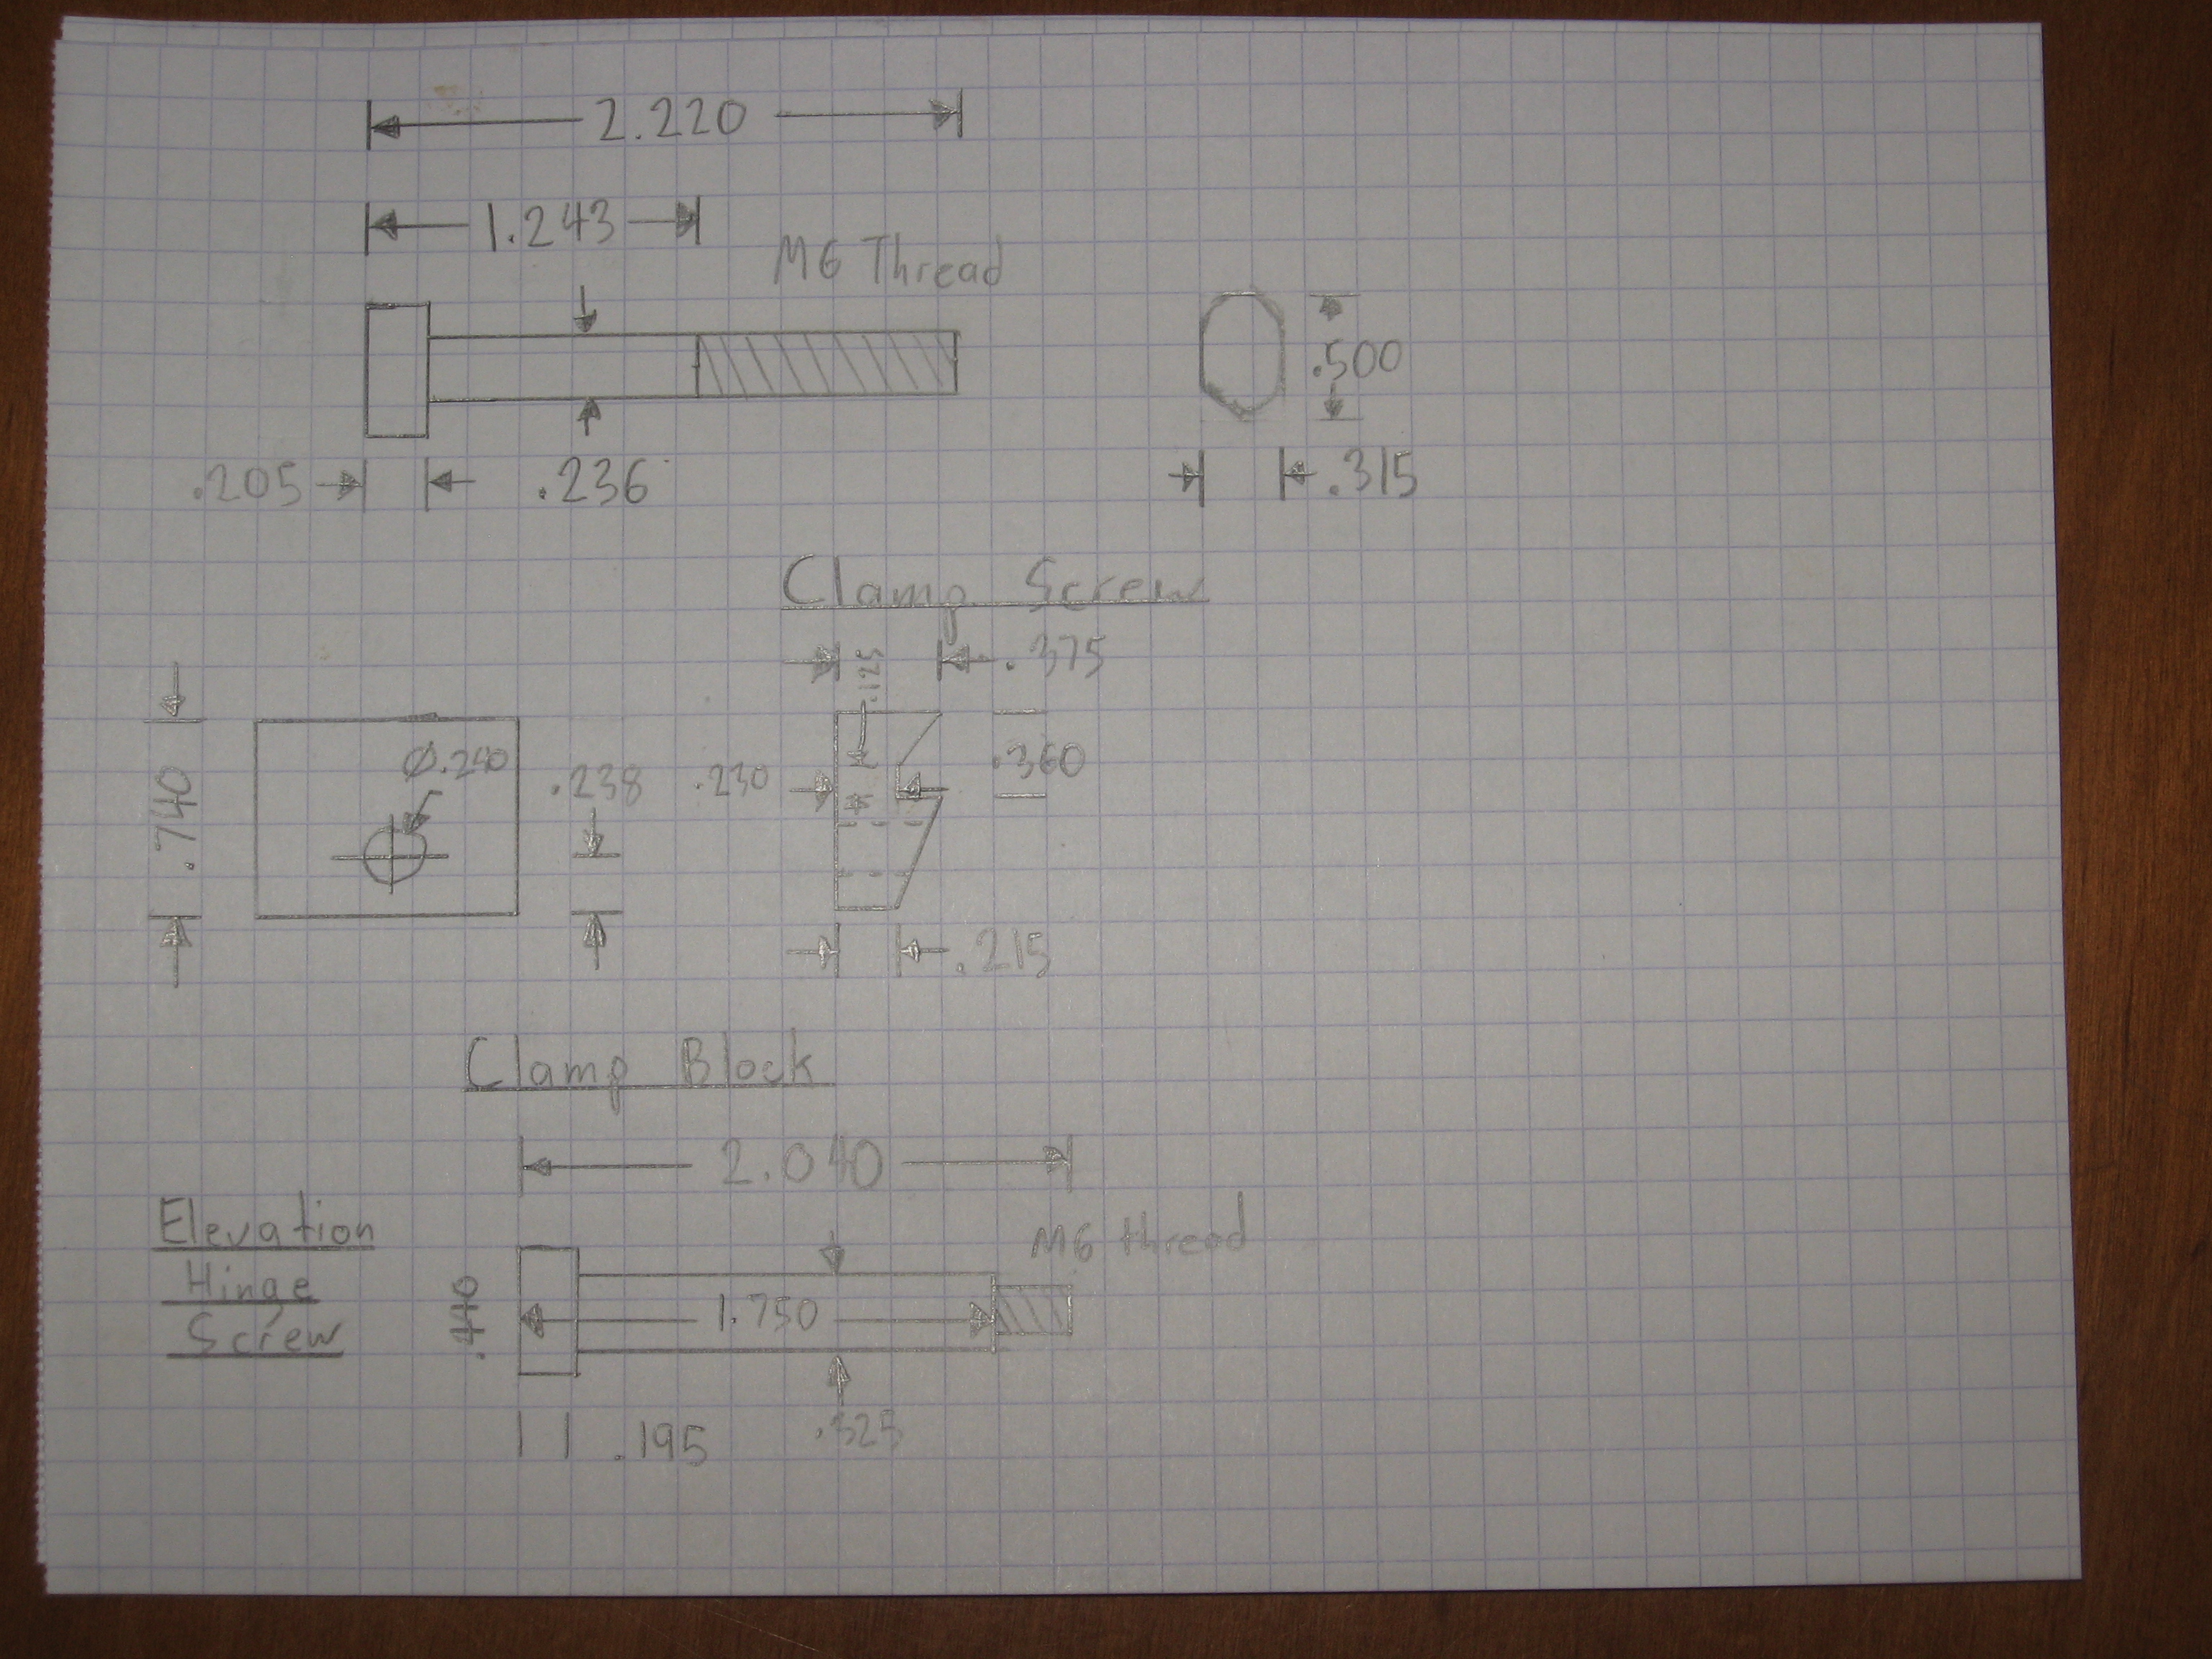 2.220
1.243
M6 Thread
.500
.205
.236
.315
Clamp Screw
.375
.125
Ø.240
.740
.238
.230
.360
.215
Clamp Block
2.040
Elevation
Hinge
Screw
M6 thread
.440
1.750
.195
.325